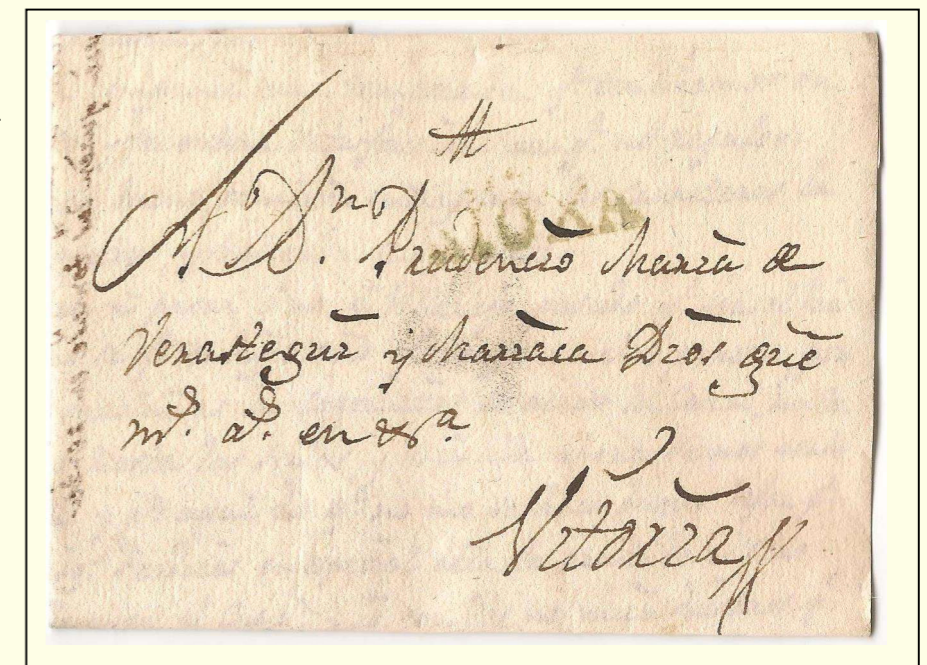 A Dn. Prudencio Maria de
Verastegui y Mariaca Dios gue
md. ad. en &a.
Vitoria